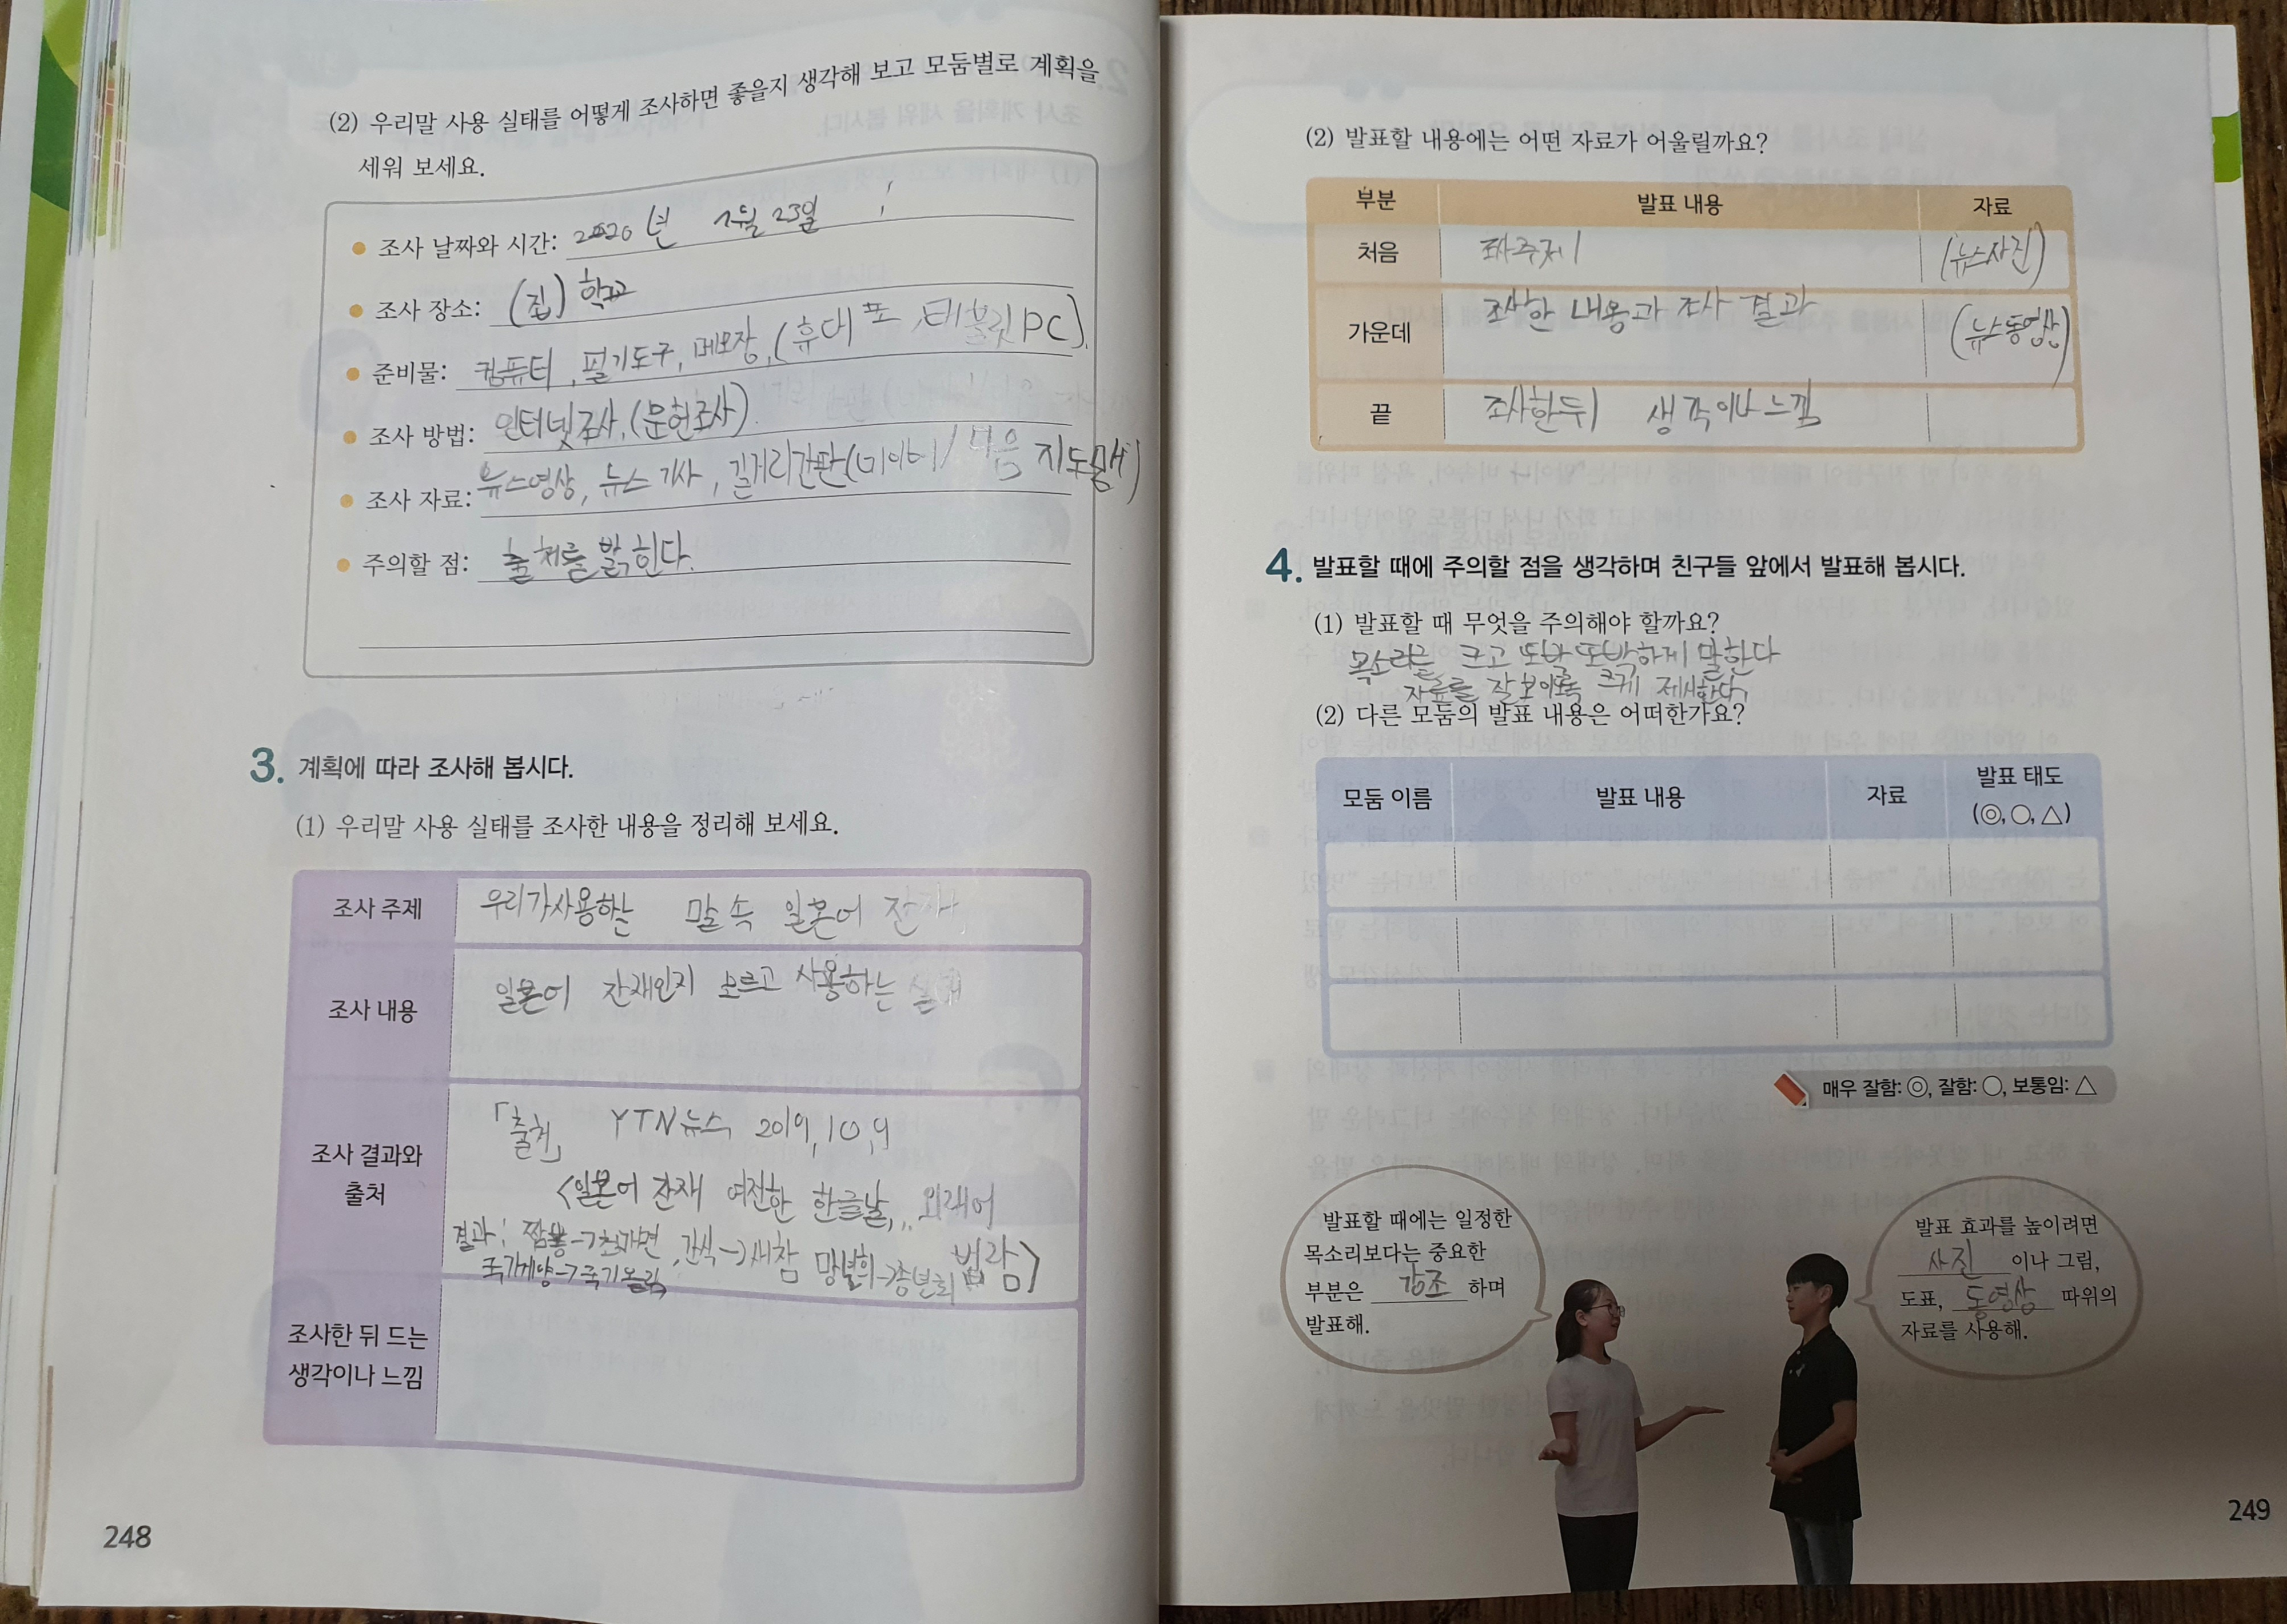 (2) 우리말 사용 실태를 어떻게 조사하면 좋을지 생각해 보고 모둠별로 계획을
세워 보세요.
조사 날짜와 시간: 2020년 23일
조사 장소: (집) 학교
준비물: 컴퓨터, 필기도구, 메모장, (휴대폰, 태블릿PC).
조사 방법: 인터넷조사, (문헌조사).
조사 자료: 뉴스영상, 뉴스기사, 길거리간판(네이버/다음 지도맵)
주의할 점: 출처를 밝힌다.
3. 계획에 따라 조사해 봅시다.
(1) 우리말 사용 실태를 조사한 내용을 정리해 보세요.
조사 주제 우리가사용하는 말 속 일본어 잔재
조사 내용 일본어 잔재인지 모르고 사용하는 실태
조사 결과와
출처
「출처」 YTN뉴스 2019, 10, 9
<일본어 잔재 여전한 한글날,,, 외래어
범람>
결과: 간식→새참 망년회→송년회
조사한 뒤 드는
생각이나 느낌
248
(2) 발표할 내용에는 어떤 자료가 어울릴까요?
부분 발표 내용 자료
처음 (뉴스사진)
가운데 조사한 내용과 조사 결과 (뉴스동영상)
끝 조사한뒤 생각이나 느낌
4. 발표할 때에 주의할 점을 생각하며 친구들 앞에서 발표해 봅시다.
(1) 발표할 때 무엇을 주의해야 할까요?
목소리를 크고 또박또박하게 말한다
자료를 잘 보이도록 크게 제시한다
(2) 다른 모둠의 발표 내용은 어떠한가요?
모둠 이름 발표 내용 자료 발표 태도
(◎, ○, △)
매우 잘함: ◎, 잘함: ○, 보통임: △
발표할 때에는 일정한
목소리보다는 중요한
부분은 강조 하며
발표해.
발표 효과를 높이려면
사진 이나 그림,
도표, 동영상 따위의
자료를 사용해.
249